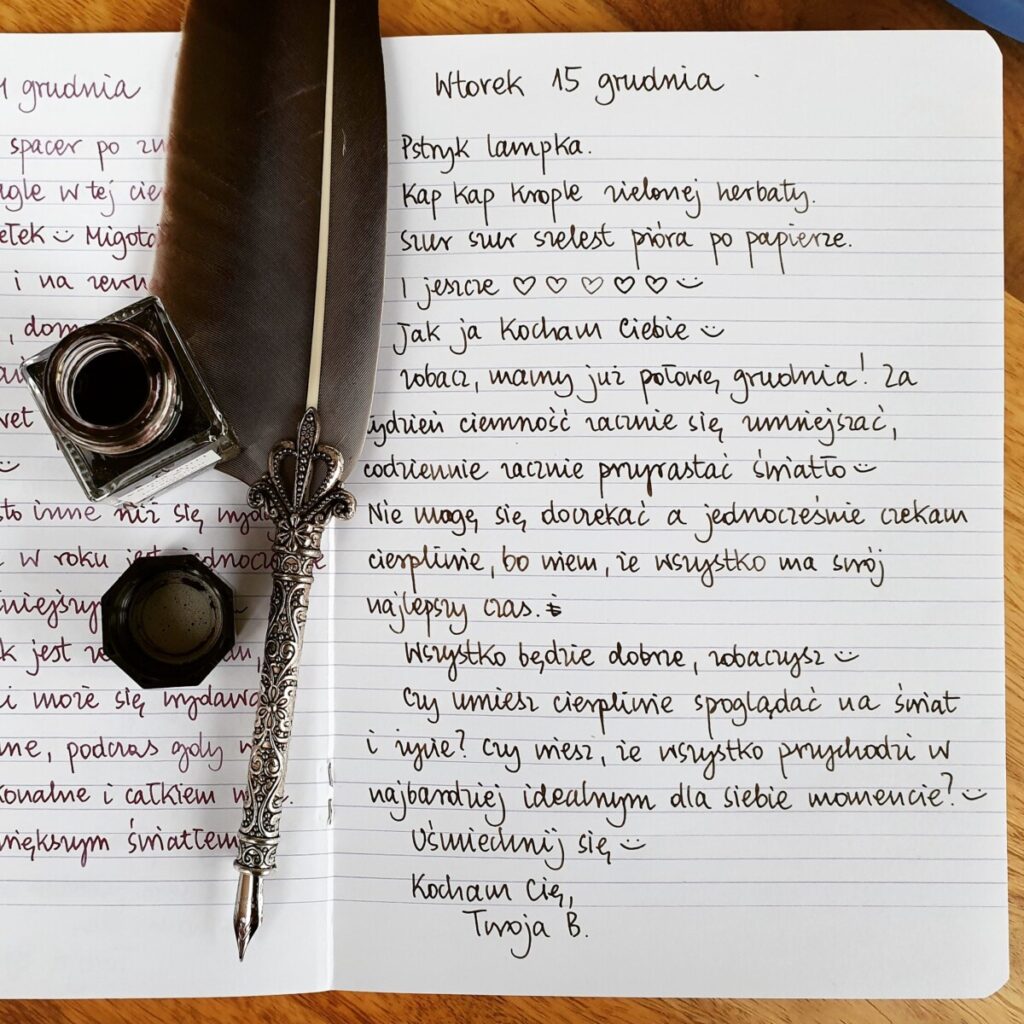 grudnia
spacer po
w tej
Migoto
i na
sto inne niż się wydaj
w roku jest jednocz
k jest
i może się wydawa
ne, podczas gdy w
konalne i całkiem w
większym światłem
Wtorek 15 grudnia
Pstryk lampka.
Kap kap krople zielonej herbaty.
Szur szur szelest pióra po papierze.
I jeszcze ♡ ♡ ♡ ♡ ♡ :)
Jak ja Kocham Ciebie :)
Zobacz, mamy już połowę grudnia! Za
tydzień ciemność zacznie się zmniejszać,
codziennie zacznie przyrastać światło :)
Nie mogę się doczekać a jednocześnie czekam
cierpliwie, bo wiem, że wszystko ma swój
najlepszy czas.
Wszystko będzie dobrze, zobaczysz :)
Czy umiesz cierpliwie spoglądać na świat
i życie? Czy wiesz, że wszystko przychodzi w
najbardziej idealnym dla siebie momencie? :)
Uśmiechnij się :)
Kocham Cię,
Twoja B.